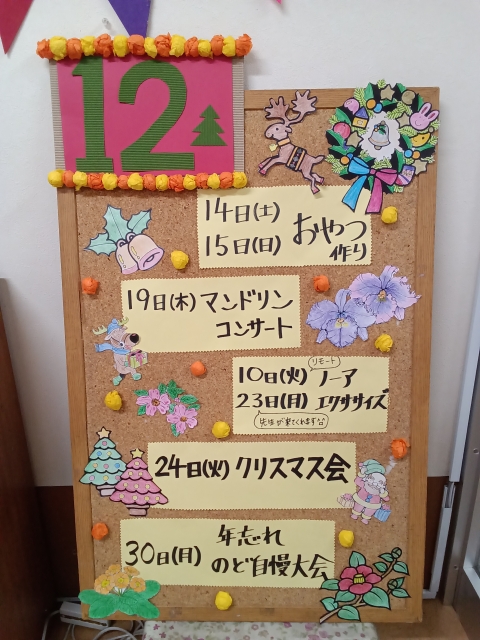 12
14日(土)
15日(日)
おやつ
作り
19日(木) マンドリン
コンサート
リモート
10日(火) ノーア
23日(月) エクササイズ
先生が来てくれます
24日(火) クリスマス会
30日(月)
年忘れ
のど自慢大会